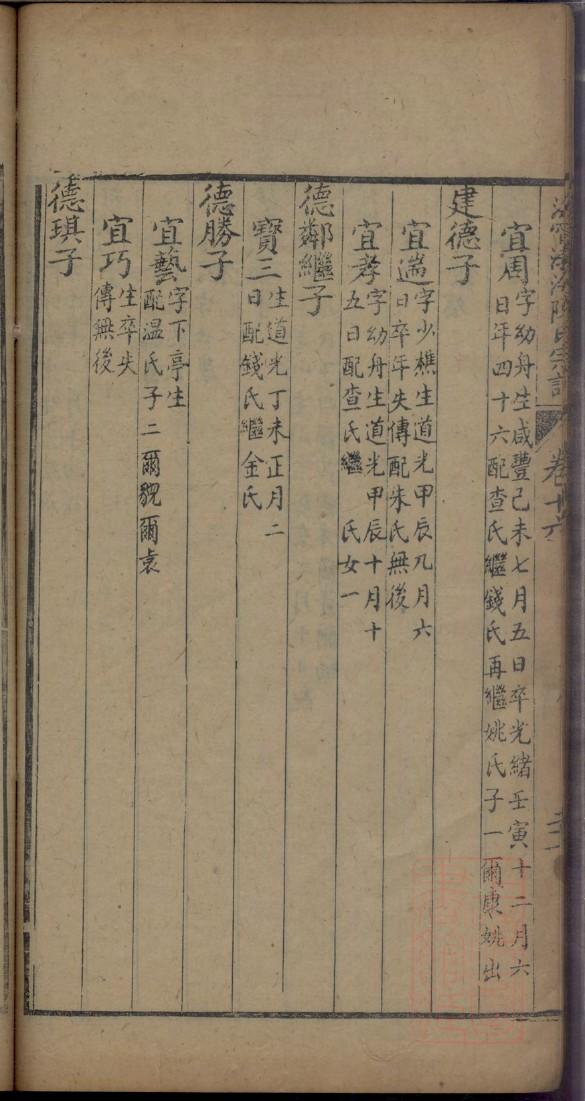 陳氏宗譜
卷十六
宜周字幼舟生咸豐己未七月五日卒光緒壬寅十二月六
日年四十六配查氏繼錢氏再繼姚氏子一爾康姚出
建德子
宜遄字少樵生道光甲辰九月六
日卒年失傳配朱氏無後
宜孝字幼舟生道光甲辰十月十
五日配查氏繼 氏女一
德鄰繼子
寶三生道光丁未正月二
日配錢氏繼金氏
德勝子
宜藝字下亭生
配温氏子二爾貌爾袁
宜巧生卒失
傳無後
德琪子